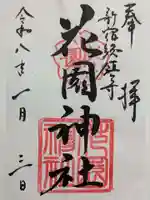 奉拝
新宿総鎮守
花園神社
令和八年一月三日